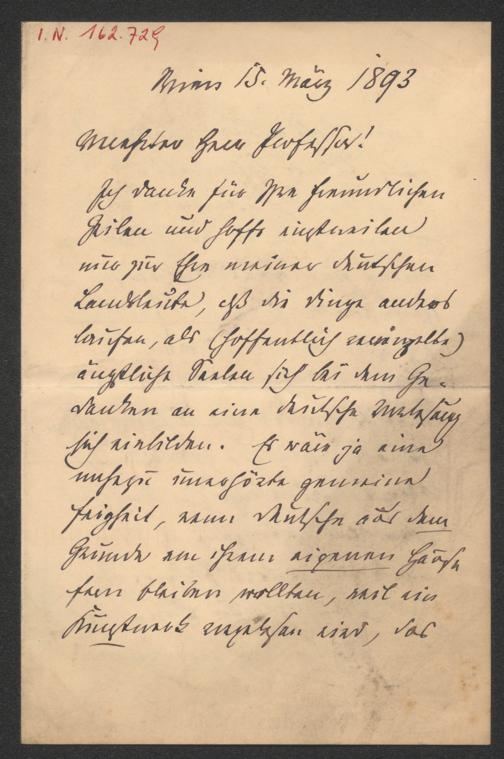 I.N. 162.729
Wien 15. März 1893
Verehrter Herr Professor!
Ich danke für Ihre freundlichen
Zeilen und hoffe einstweilen
nur zur Ehre meiner deutschen
Landsleute, daß die Dinge anders
laufen, als (hoffentlich vereinzelte)
ängstliche Seelen sich bei dem Ge-
danken an eine deutsche Vorlesung
sich einbilden. Es wäre ja eine
nahezu unerhörte gemeine
Feigheit, wenn Deutsche aus dem
Grunde von ihrem eigenen Hause
fern bleiben wollten, weil ein
Kunstwerk vorgelesen wird, das